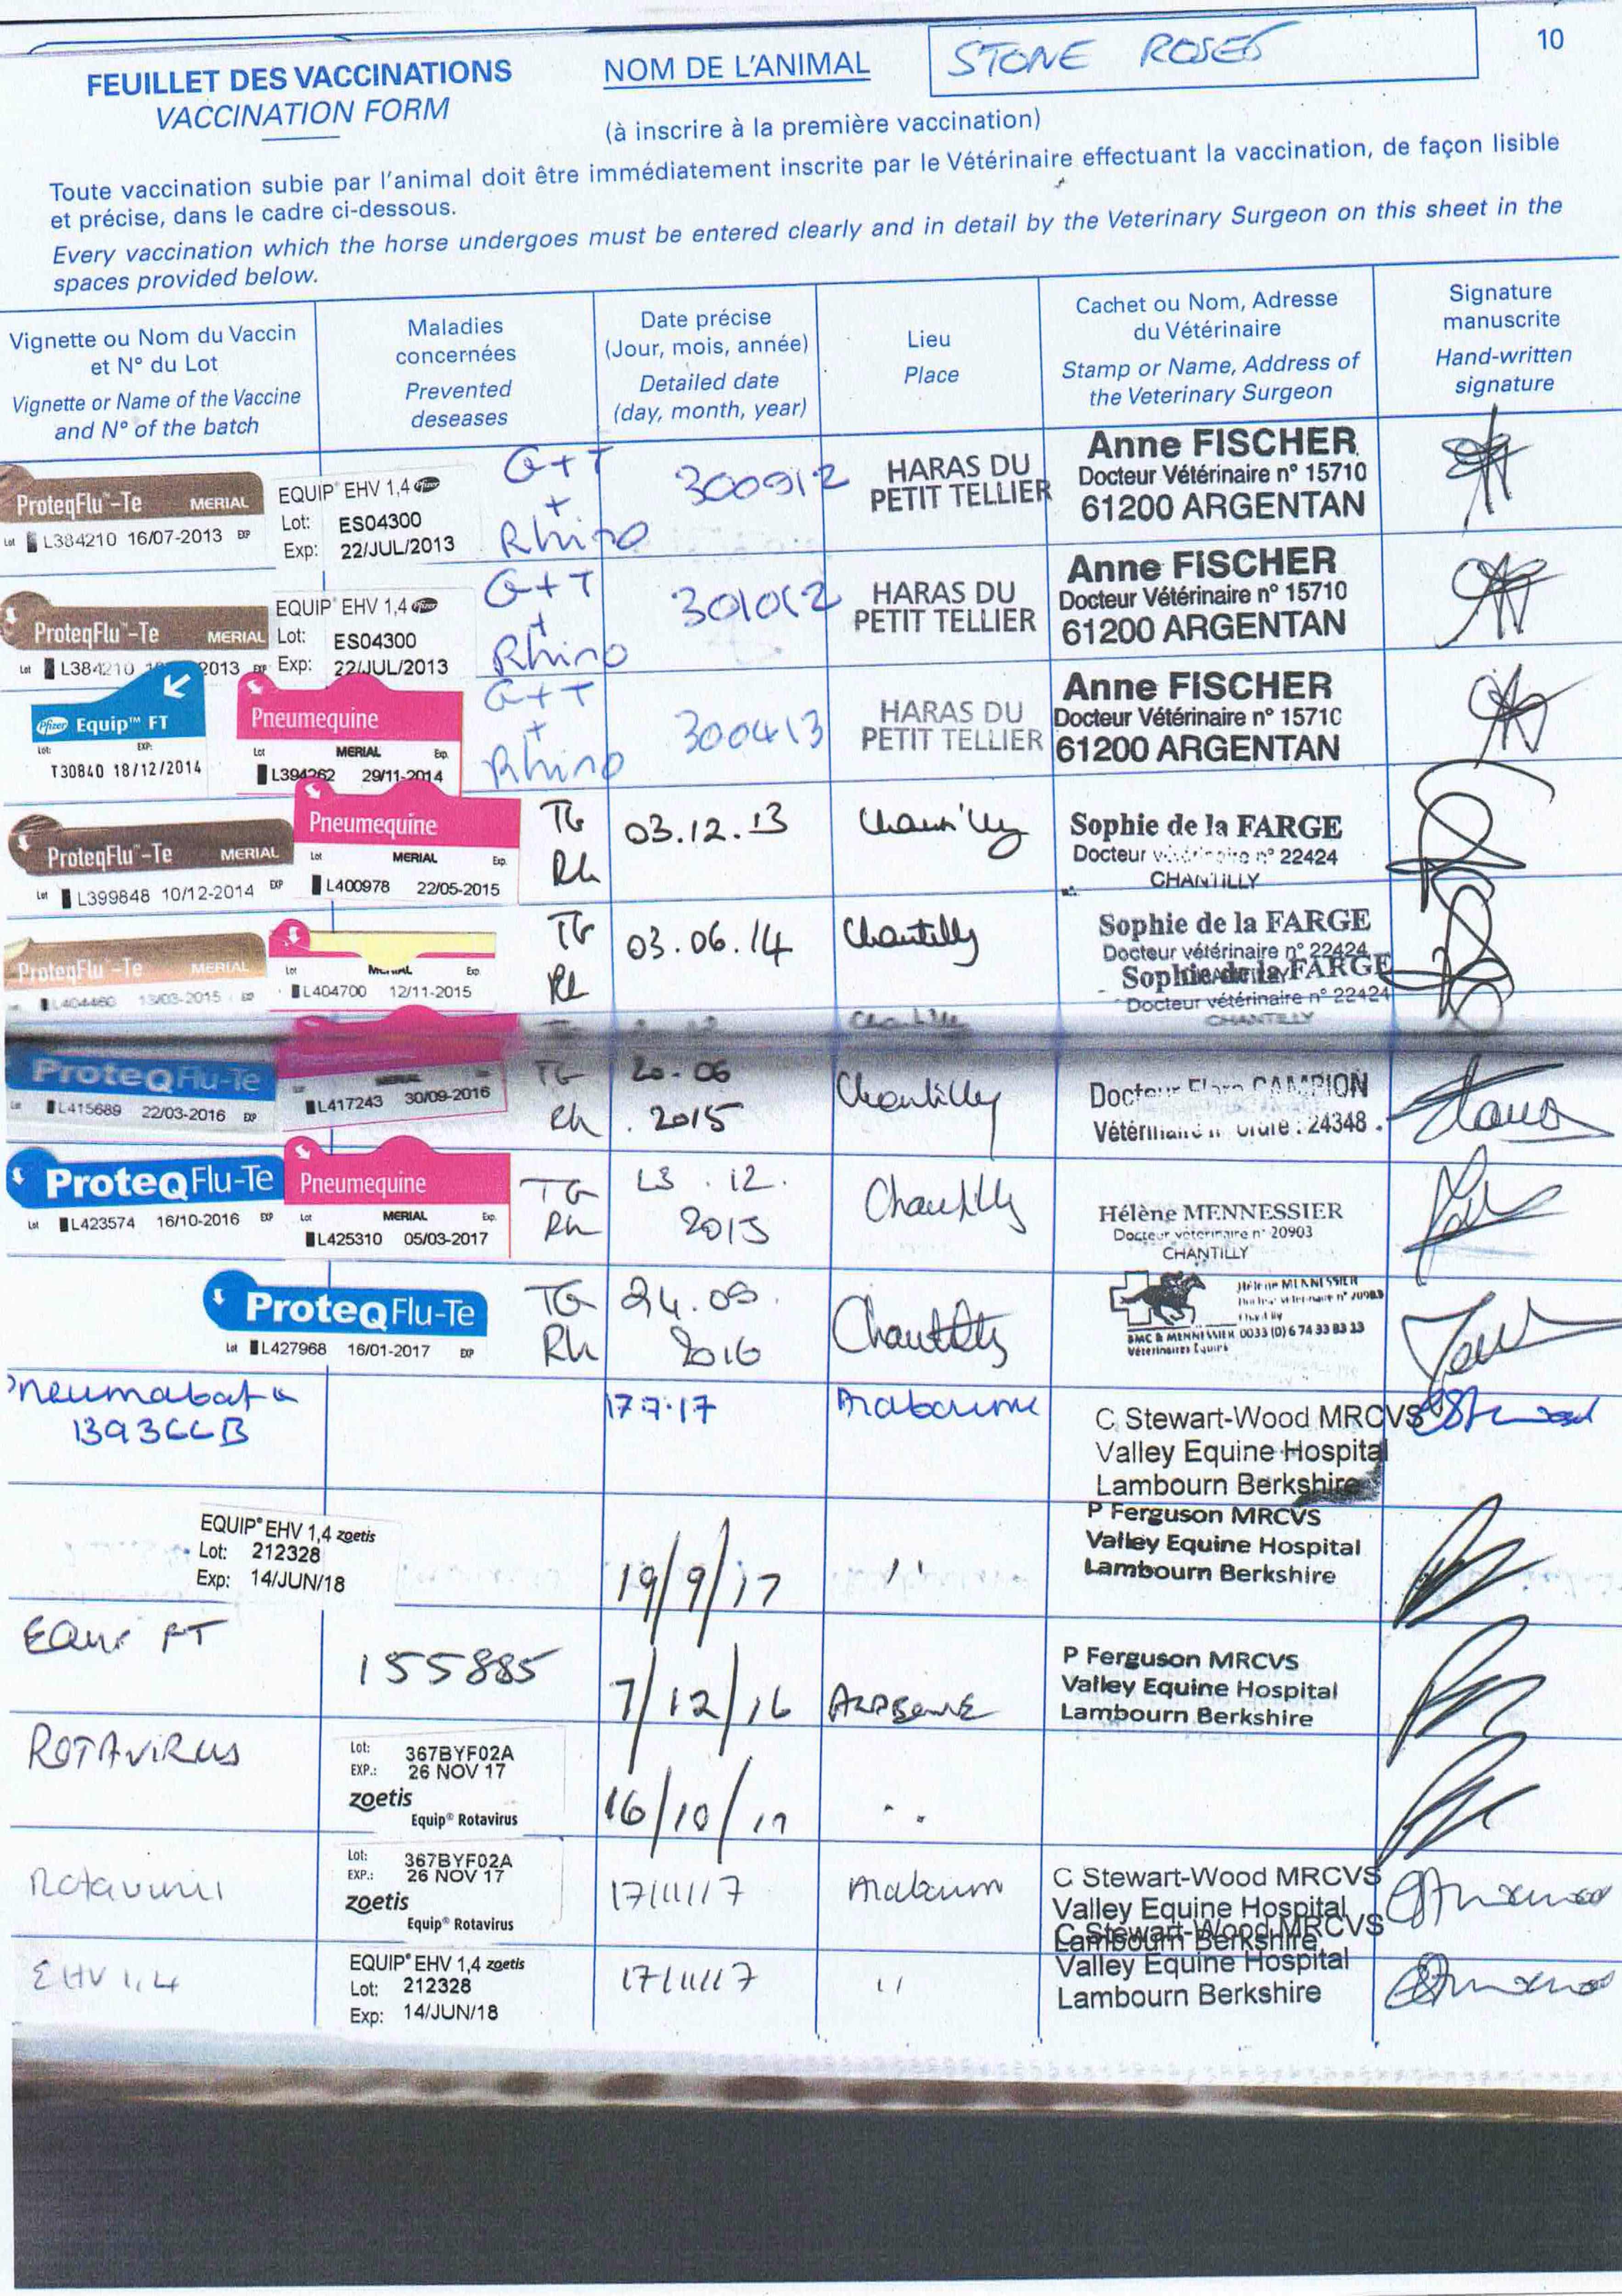 10
FEUILLET DES VACCINATIONS
VACCINATION FORM
NOM DE L'ANIMAL
STONE ROSES
(à inscrire à la première vaccination)
Toute vaccination subie par l'animal doit être immédiatement inscrite par le Vétérinaire effectuant la vaccination, de façon lisible
et précise, dans le cadre ci-dessous.
Every vaccination which the horse undergoes must be entered clearly and in detail by the Veterinary Surgeon on this sheet in the
spaces provided below.
Vignette ou Nom du Vaccin
et N° du Lot
Vignette or Name of the Vaccine
and N° of the batch
Maladies
concernées
Prevented
deseases
Date précise
(Jour, mois, année)
Detailed date
(day, month, year)
Lieu
Place
Cachet ou Nom, Adresse
du Vétérinaire
Stamp or Name, Address of
the Veterinary Surgeon
Signature
manuscrite
Hand-written
signature
ProteqFlu™-Te MERIAL
Lot L384210 16/07-2013 EXP
EQUIP® EHV 1,4 Pfizer
Lot: ES04300
Exp: 22/JUL/2013
G+T
+
Rhino
300912
HARAS DU
PETIT TELLIER
Anne FISCHER
Docteur Vétérinaire n° 15710
61200 ARGENTAN
ProteqFlu™-Te MERIAL
Lot L384210 2013 EXP
EQUIP® EHV 1,4 Pfizer
Lot: ES04300
Exp: 22/JUL/2013
G+T
+
Rhino
301012
HARAS DU
PETIT TELLIER
Anne FISCHER
Docteur Vétérinaire n° 15710
61200 ARGENTAN
Pfizer Equip™ FT
Lot: EXP:
T30840 18/12/2014
Pneumequine
Lot MERIAL Exp.
L394262 29/11-2014
G+T
+
Rhino
300413
HARAS DU
PETIT TELLIER
Anne FISCHER
Docteur Vétérinaire n° 15710
61200 ARGENTAN
ProteqFlu™-Te MERIAL
Lot L399848 10/12-2014 EXP
Pneumequine
Lot MERIAL Exp.
L400978 22/05-2015
TG
Rh
03.12.13
Chantilly
Sophie de la FARGE
Docteur vétérinaire n° 22424
CHANTILLY
ProteqFlu™-Te MERIAL
L404460 13/03-2015 EXP
Lot MERIAL Exp.
L404700 12/11-2015
TG
Rh
03.06.14
Chantilly
Sophie de la FARGE
Docteur vétérinaire n° 22424
Sophie de la FARGE
Docteur vétérinaire n° 22424
CHANTILLY
ProteqFlu-Te
L415689 22/03-2016 EXP
MERIAL
L417243 30/09-2016
TG
Rh
20.06
2015
Chantilly
Docteur CAMPION
24348
ProteqFlu-Te
Lot L423574 16/10-2016 EXP
Pneumequine
Lot MERIAL Exp.
L425310 05/03-2017
TG
Rh
13.12.
2015
Chantilly
Hélène MENNESSIER
Docteur vétérinaire n° 20903
CHANTILLY
ProteqFlu-Te
Lot L427968 16/01-2017 EXP
TG
Rh
24.05.
2016
Chantilly
Hélène MENNESSIER
BMC & MENNESSIER 0033 (0) 6 74 33 83 23
Vétérinaires Equins
Pneumabort K
17.7.17
C Stewart-Wood MRCVS
Valley Equine Hospital
Lambourn Berkshire
EQUIP® EHV 1,4 zoetis
Lot: 212328
Exp: 14/JUN/18
19/9/17
''
P Ferguson MRCVS
Valley Equine Hospital
Lambourn Berkshire
Equip FT
155885
7/12/16
P Ferguson MRCVS
Valley Equine Hospital
Lambourn Berkshire
ROTAVIRUS
Lot: 367BYF02A
EXP.: 26 NOV 17
zoetis
Equip® Rotavirus
16/10/17
Rotavirus
Lot: 367BYF02A
EXP.: 26 NOV 17
zoetis
Equip® Rotavirus
17/11/17
C Stewart-Wood MRCVS
Valley Equine Hospital
Lambourn Berkshire
EHV 1,4
EQUIP® EHV 1,4 zoetis
Lot: 212328
Exp: 14/JUN/18
17/11/17
''
C Stewart-Wood MRCVS
Valley Equine Hospital
Lambourn Berkshire